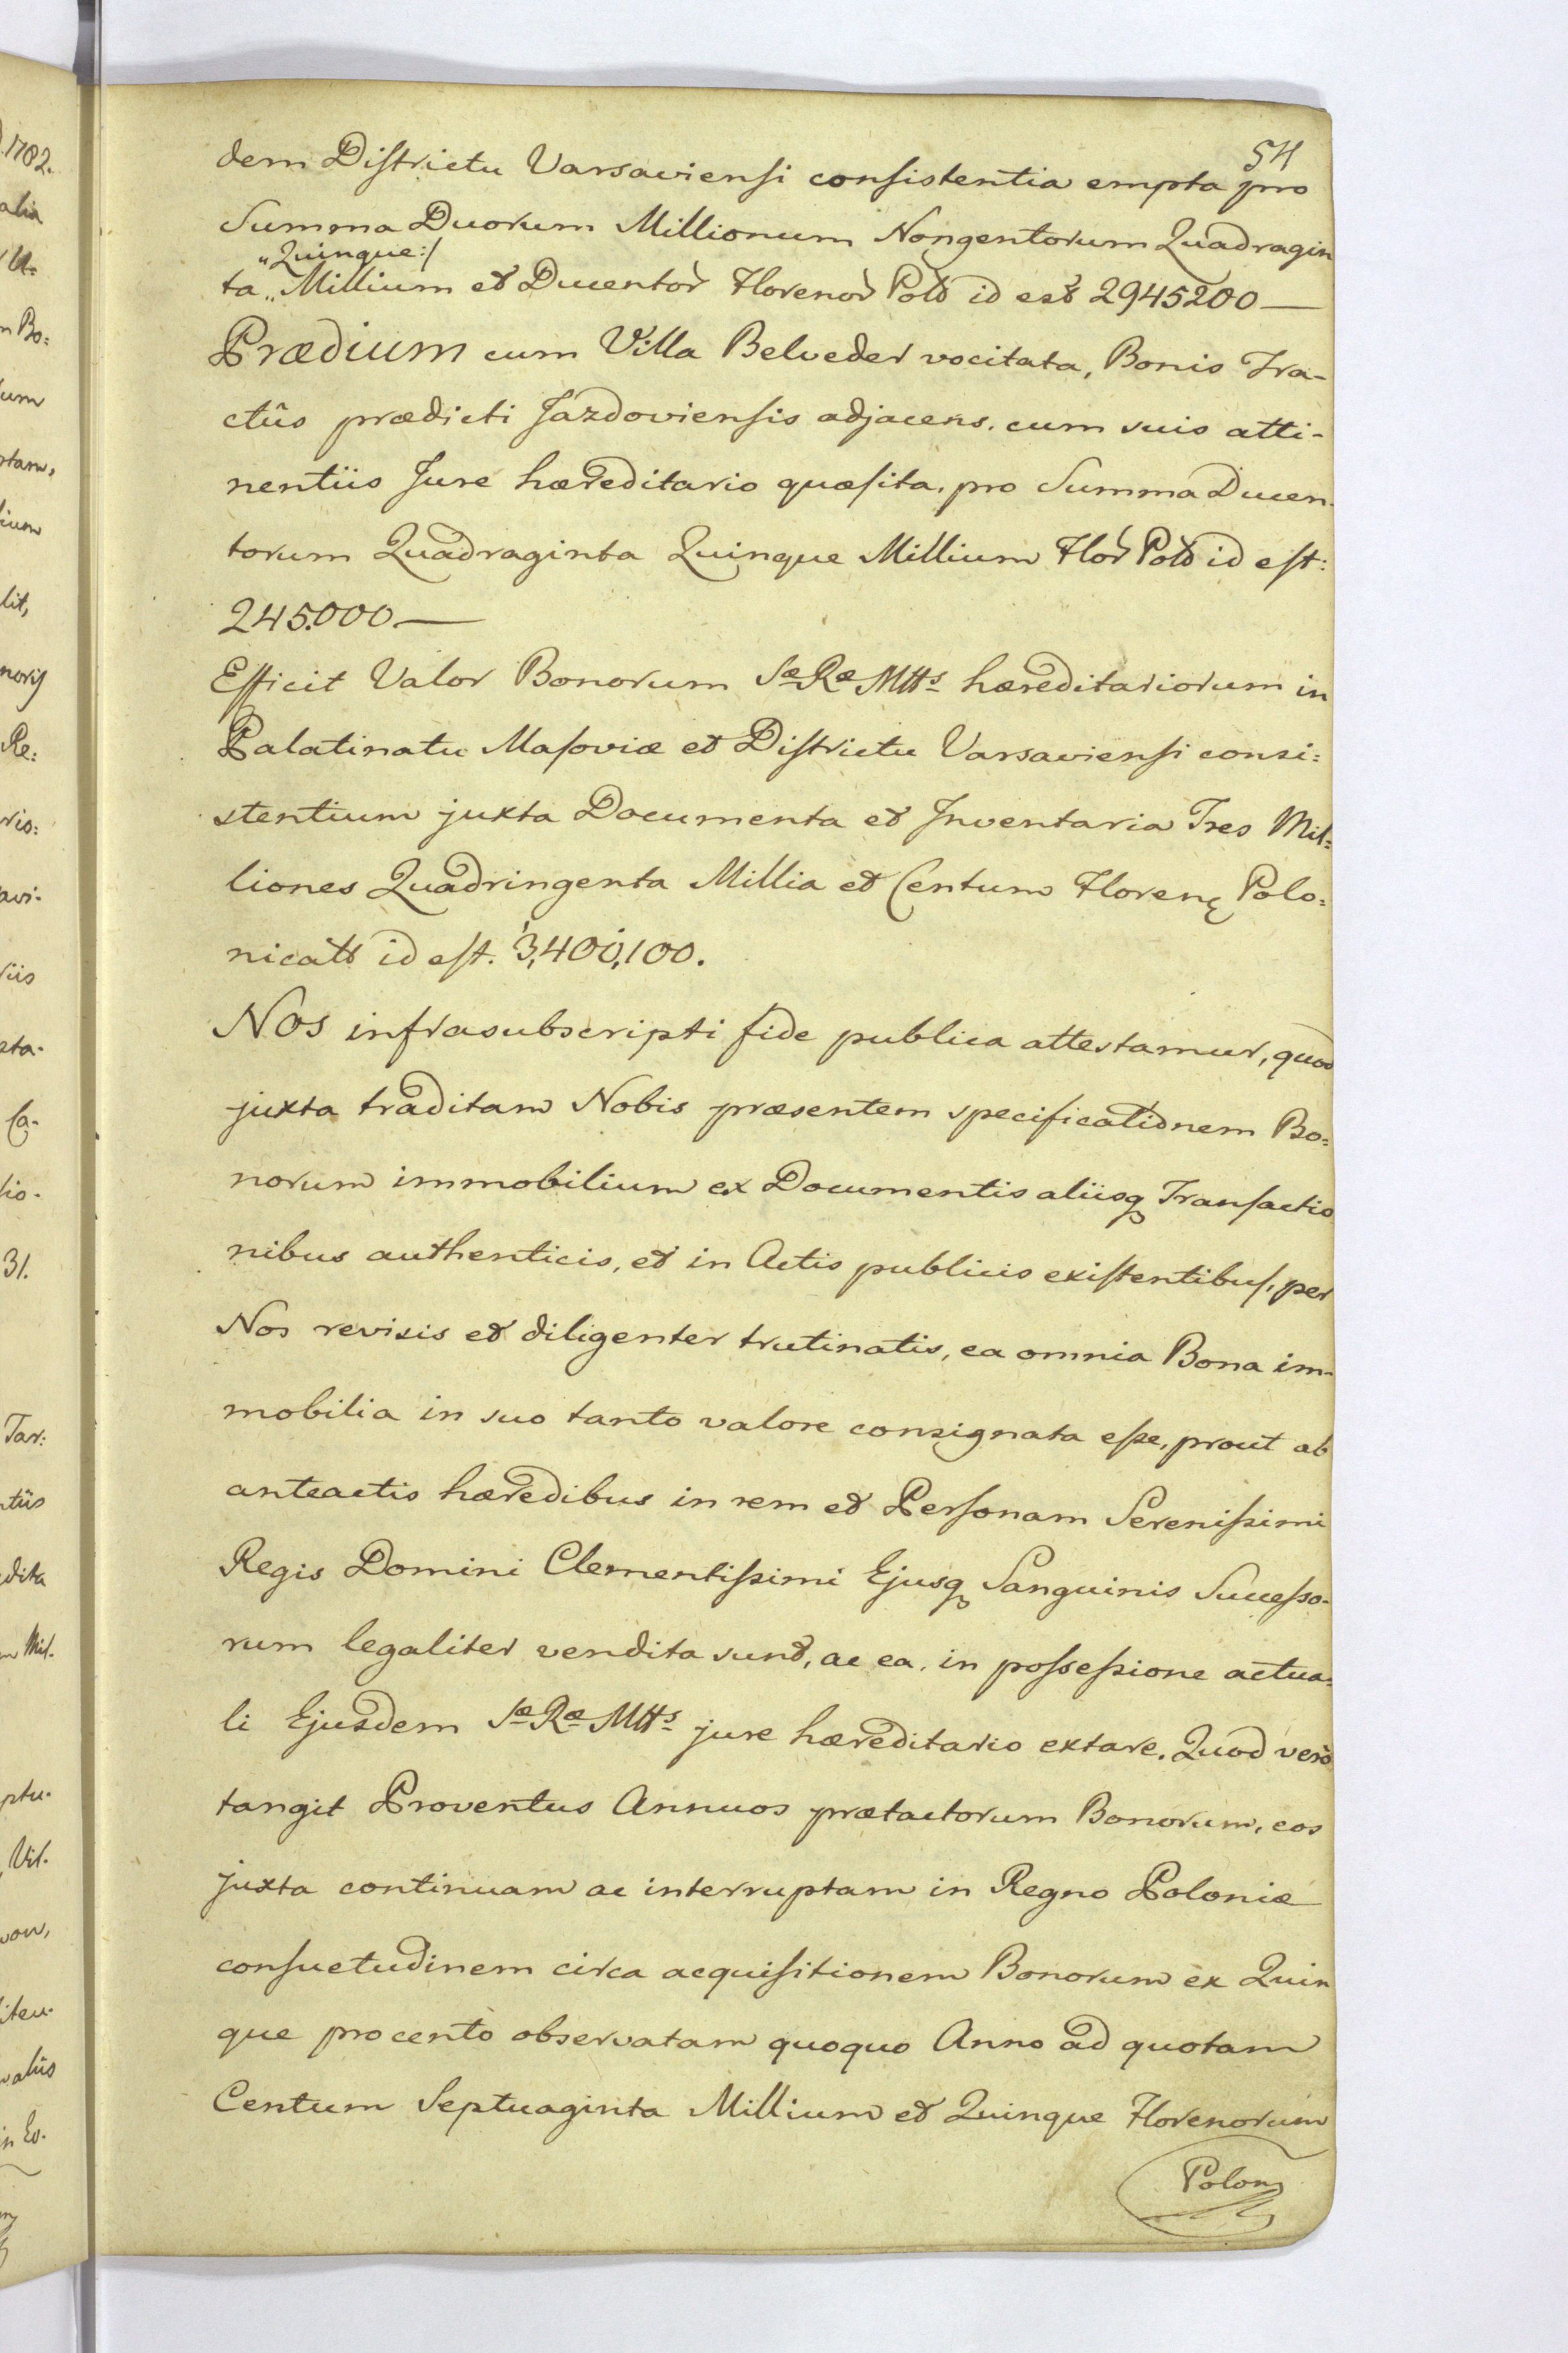 54
dem Districtu Varsaviensi consistentia empta pro
Summa Duorum Millionum Nongentorum Quadragin
„Quinque:/
ta „ Millium et Ducentor Florenor Pol id est 2945200 —
Prædium cum Villa Belveder vocitata, Bonis Tra-
ctûs prædicti Jazdoviensis adjacens. cum suis atti-
nentiis Jure hæreditario quæsita, pro Summa Ducen-
torum Quadraginta Quinque Millium Flor Pol id est:
245.000 —
Efficit Valor Bonorum Sæ Ræ Mtts hæreditariorum in
Palatinatu Masoviæ et Districtu Varsaviensi consi=
stentium juxta Documenta et Inventaria Tres Mil=
liones Quadringenta Millia et Centum Floren Polo=
nical id est. 3,400,100.
Nos infrasubscripti fide publica attestamur, quod
juxta traditam Nobis præsentem specificationem Bo=
norum immobilium ex Documentis aliisq Transactio
nibus authenticis, et in Actis publicis existentibus, per
Nos revisis et diligenter trutinatis, ea omnia Bona im-
mobilia in suo tanto valore consignata esse, prout ab
anteactis hæredibus in rem et Personam Serenissimi
Regis Domini Clementissimi Ejusq Sanguinis Successo-
rum legaliter vendita sunt, ac ea, in possessione actua=
li Ejusdem Sæ Ræ Mtts jure hæreditario extare. Quod verò
tangit Proventus Annuos prætactorum Bonorum, eos
juxta continuam ac interruptam in Regno Poloniæ
consuetudinem circa acquisitionem Bonorum ex Quin
que procento observatam quoquo Anno ad quotam
Centum Septuaginta Millium et Quinque Florenorum
Polon